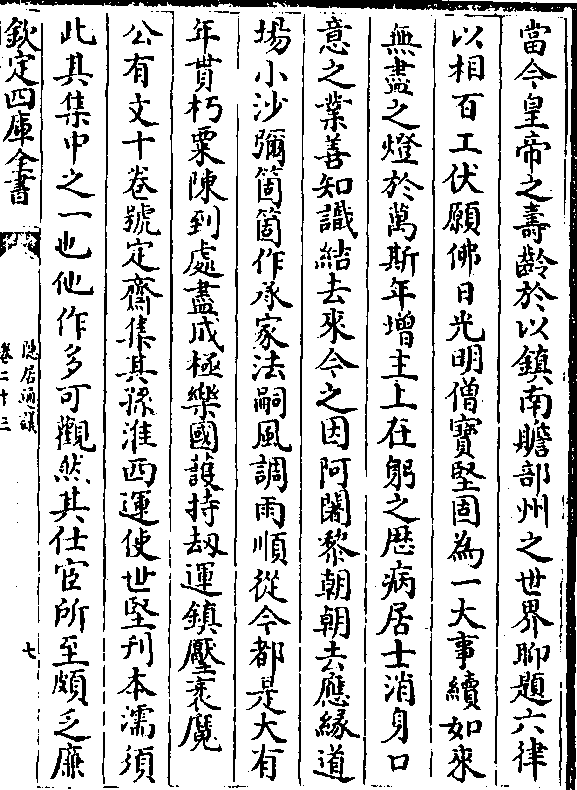 當今皇帝之壽齡於以鎮南贍部州之世界聊題六律
以相百工伏願佛日光明僧寶堅固為一大事續如來
無盡之燈於萬斯年增主上在躬之歴病居士消身口
意之業善知識結去來今之因阿闍黎朝朝去應縁道
場小沙彌箇箇作承家法嗣風調雨順從今都是大有
年貫朽粟陳到處盡成極樂國護持刼運鎮壓衺魔
公有文十卷號定齋集其孫淮西運使世堅刊本濡須
此其集中之一也他作多可觀然其仕宦所至頗乏廉
欽定四庫全書
隱居通議
卷二十三
七